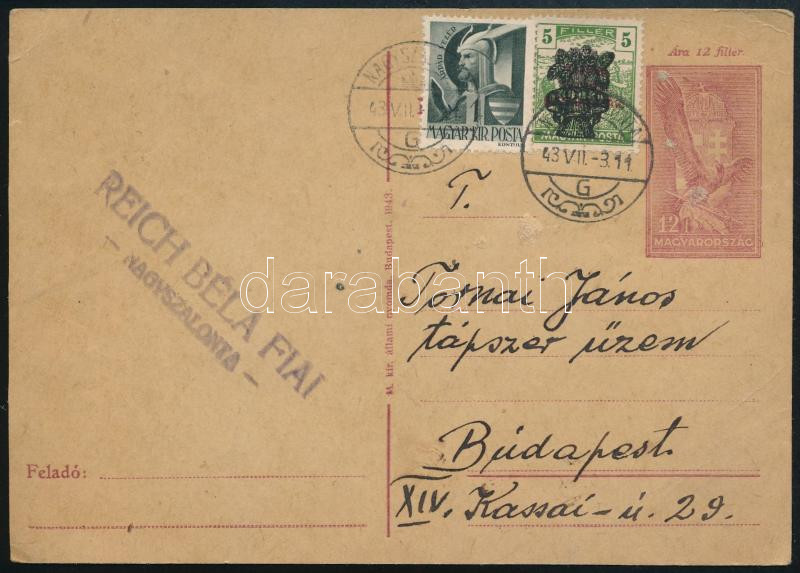 Ára 12 fillér.
ÁRPÁD VEZÉR
MAGYAR KIR. POSTA
5 FILLÉR 5
MAGYAR POSTA
NAGYSZ
43 VII.
G
43 VII. -3. 11
G
12 f
MAGYARORSZÁG
T.
REICH BÉLA FIAI
- NAGYSZALONTA -
darabanth
M. kir. állami nyomda, Budapest. 1943.
Tornai János
tápszer üzem
Budapest.
XIV. Kassai-ú. 29.
Feladó: